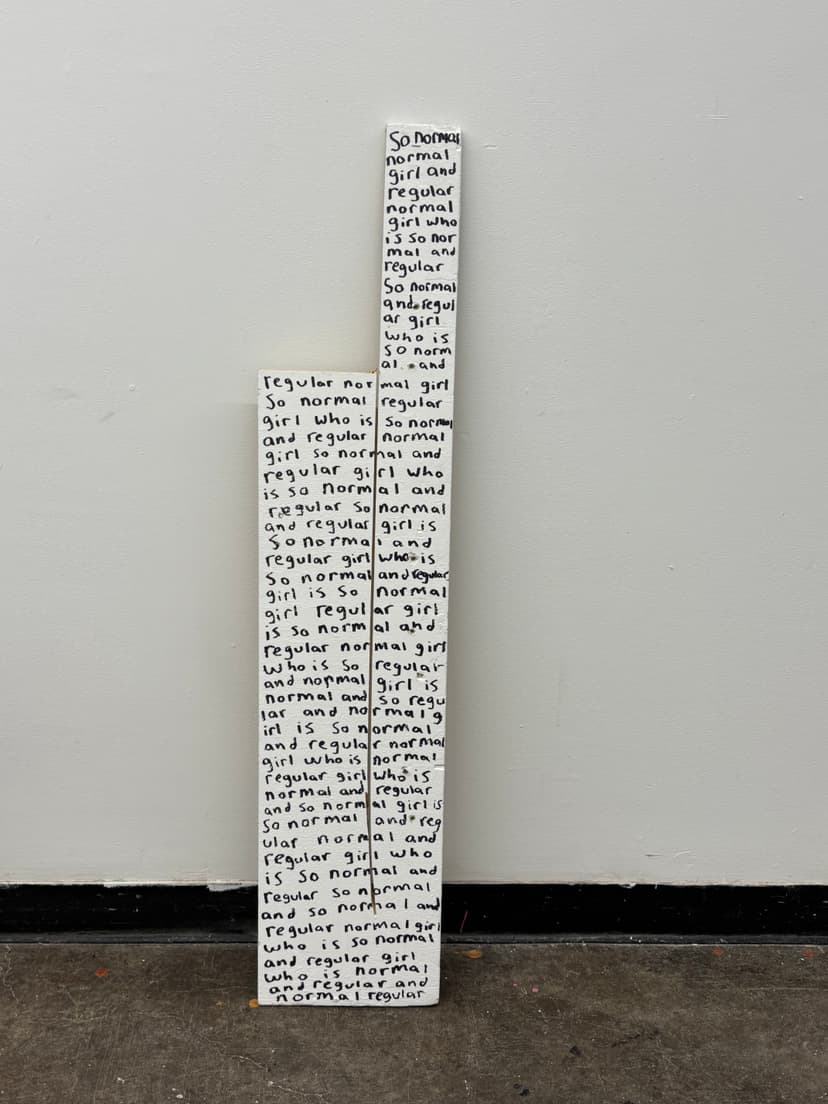 So normal
normal
girl and
regular
normal
girl who
is so nor
mal and
regular
So normal
and regul
ar girl
who is
so norm
al and
regular normal girl
So normal regular
girl who is so normal
and regular normal
girl so normal and
regular girl who
is so normal and
regular so normal
and regular girl is
so normal and
regular girl who is
so normal and regular
girl is so normal
girl regular girl
is so normal and
regular normal girl
who is so regular
and normal girl is
normal and so regu
lar and normal g
irl is so normal
and regular normal
girl who is normal
regular girl who is
normal and regular
and so normal girl is
so normal and reg
ular normal and
regular girl who
is so normal and
regular so normal
and so normal and
regular normal girl
who is so normal
and regular girl
who is normal
and regular and
normal regular